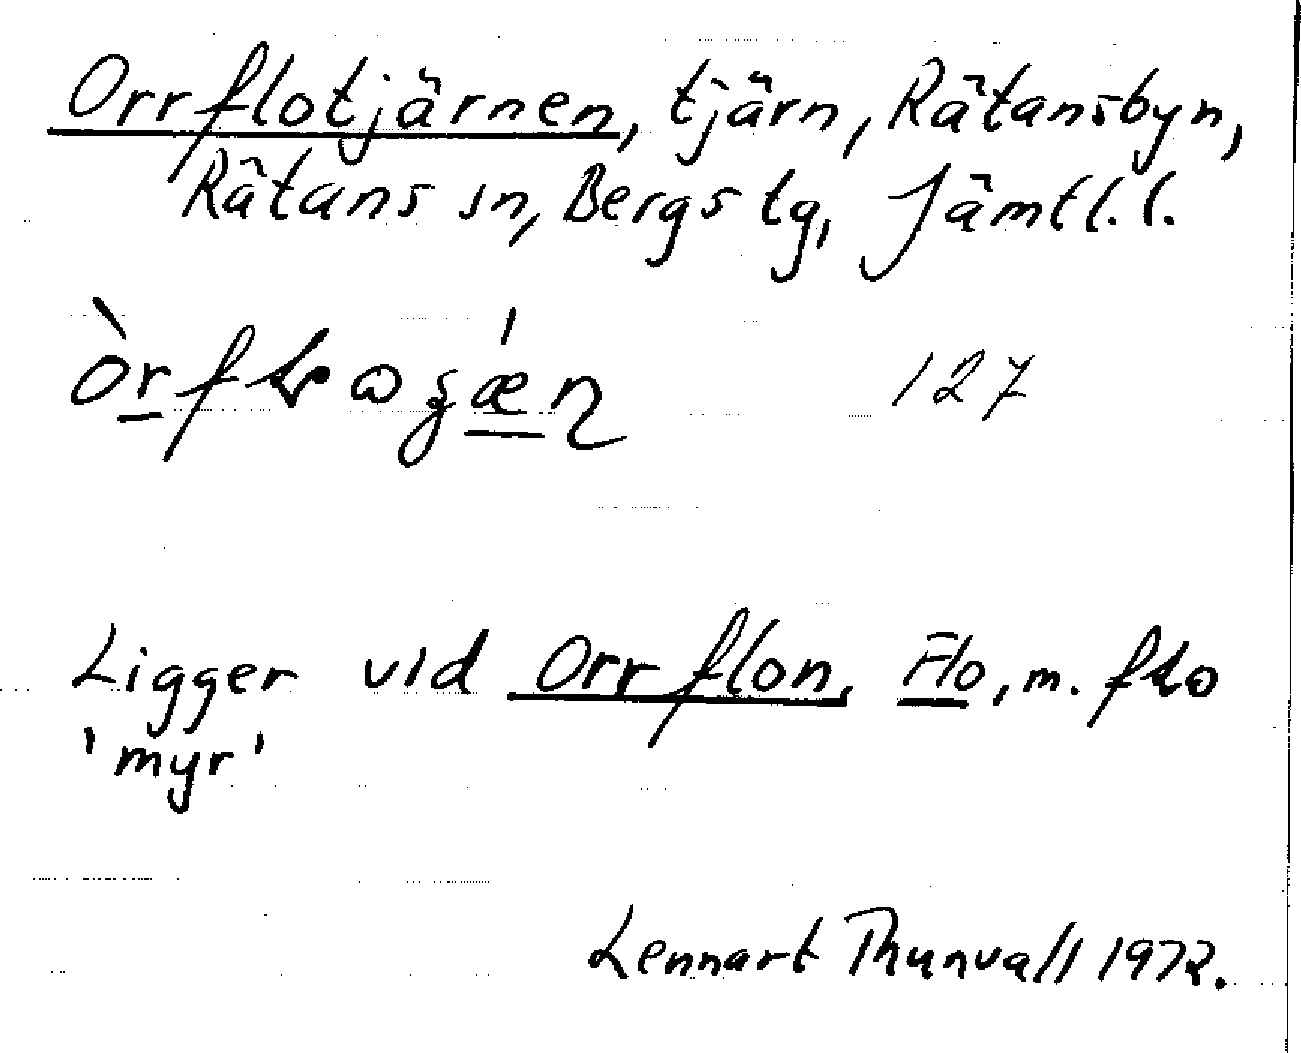 Orrflotjärnen, tjärn, Rätansbyn,
Rätans sn, Bergs tg, Jämtl. l.
127
Ligger vid Orrflon. Flo, m. flo
'myr'
Lennart Thunvall 1972.